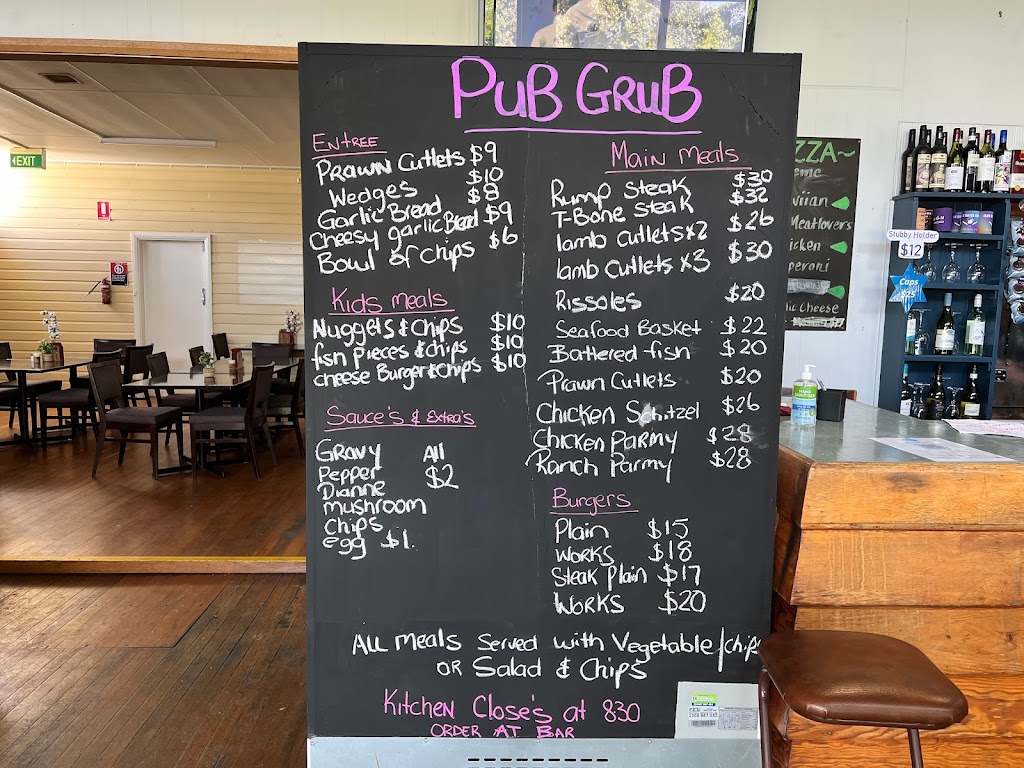 PUB GRUB
Entree
Prawn Cutlets $9
Wedges $10
Garlic Bread $8
Cheesy garlic Bread $9
Bowl of Chips $6
Kids meals
Nuggets & Chips $10
fish pieces & chips $10
cheese Burger & Chips $10
Sauce's & Extra's
Gravy All
Pepper $2
Dianne
mushroom
chips
egg $1.
Main meals
Rump Steak $30
T-Bone Steak $32
lamb cutlets x2 $26
lamb cutlets x3 $30
Rissoles $20
Seafood Basket $22
Battered fish $20
Prawn Cutlets $20
Chicken Schitzel $26
Chicken Parmy $28
Ranch Parmy $28
Burgers
Plain $15
Works $18
Steak Plain $17
Works $20
All meals Served with Vegetable/chips
OR Salad & Chips
Kitchen Close's at 830
ORDER AT BAR
EXIT
ZZA~
eme
viian
Meatlovers
icken
peroni
lic Cheese
Stubby Holder
$12
Caps
$25